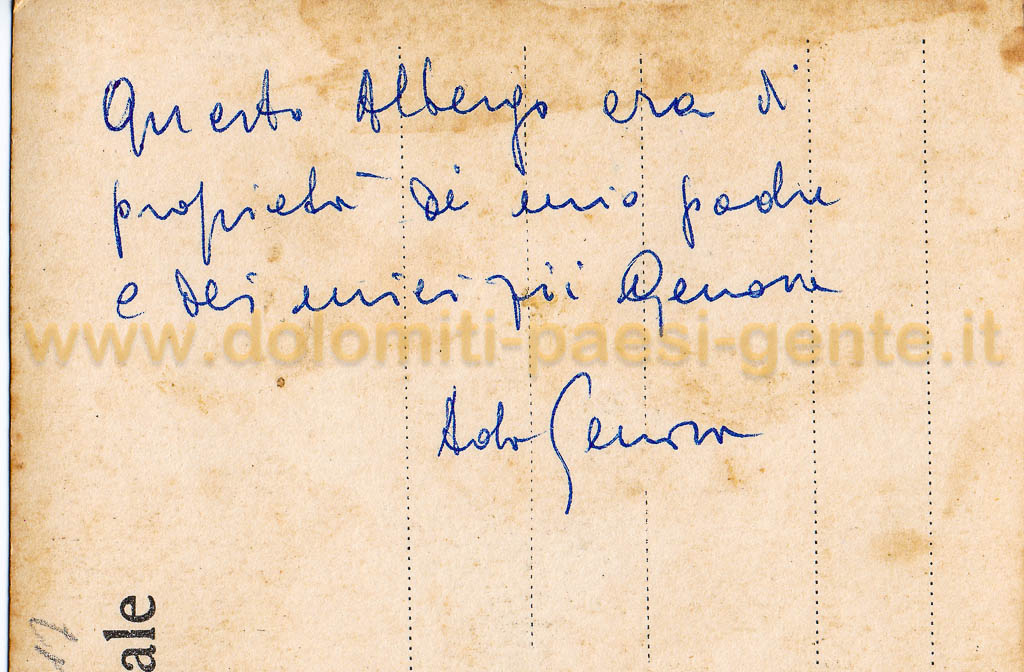 Questo Albergo era di
proprietà di mio padre
e dei miei zii Genova
www.dolomiti-paesi-gente.it
Aldo Genova
ale